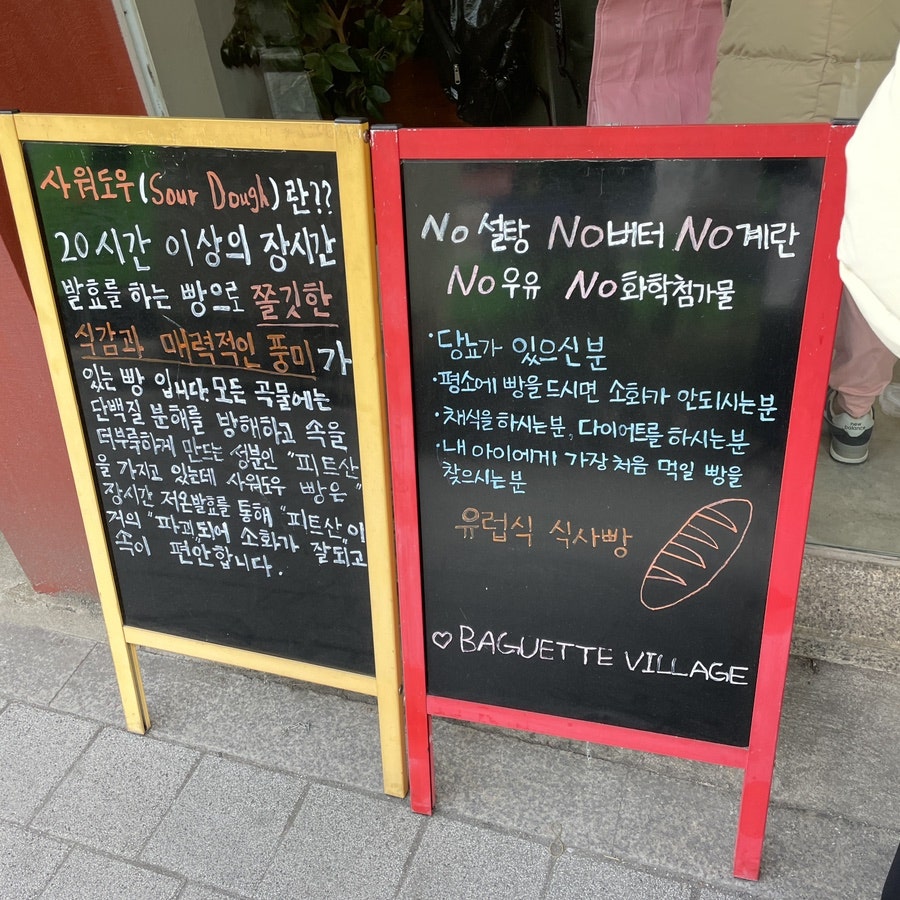 사워도우(Sour Dough)란??
20시간 이상의 장시간
발효를 하는 빵으로 쫄깃한
식감과, 매력적인 풍미가
있는 빵 입니다. 모든 곡물에는
단백질 분해를 방해하고 속을
더부룩하게 만드는 성분인 "피트산"
을 가지고 있는데 사워도우 빵은
장시간 저온발효를 통해 "피트산"이
거의 "파괴"되어 소화가 잘되고
속이 편안합니다.
No 설탕 No버터 No계란
No우유 No화학첨가물
·당뇨가 있으신분
·평소에 빵을 드시면 소화가 안되시는분
·채식을 하시는분, 다이어트를 하시는분
·내 아이에게 가장 처음 먹일 빵을
찾으시는분
유럽식 식사빵
♡ BAGUETTE VILLAGE
new balance